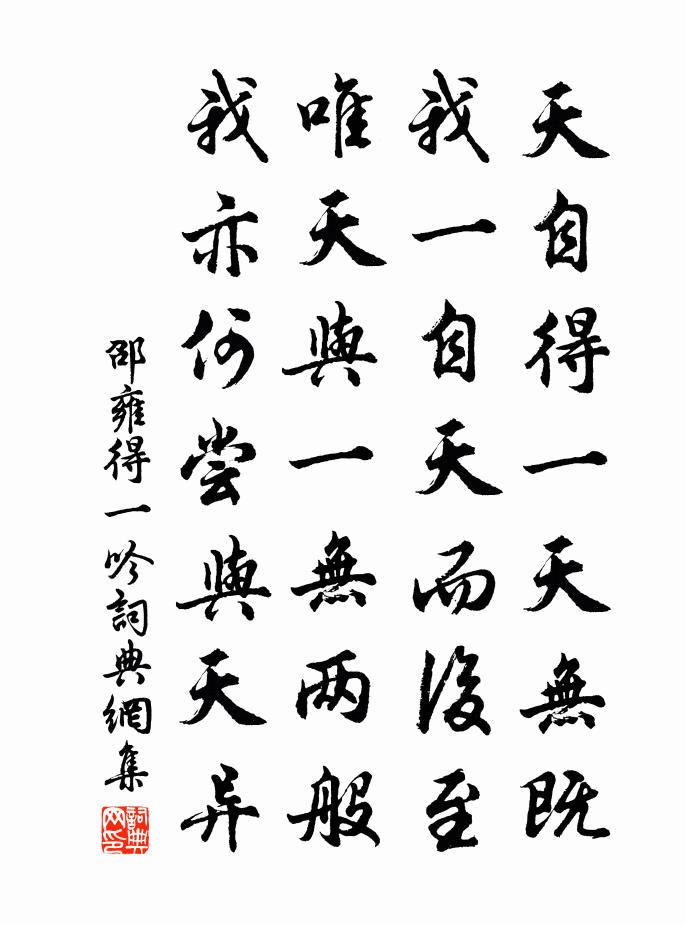 天自得一天無既
我一自天而後至
唯天與一無两般
我亦何尝與天异
邵雍得一吟詞典網集
詞典网印